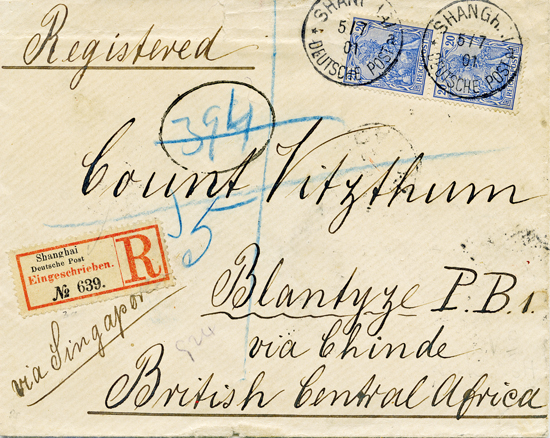 Registered
SHANGHAI
5/7
01
a
DEUTSCHE POST
SHANGHAI
5/7
01
DEUTSCHE POST
20
REICHSPOST
394
Count Vitzthum
15
Shanghai
Deutsche Post
Eingeschrieben.
№ 639.
R
Blantyze P.B.1.
via Chinde
British Central Africa
via Singapore